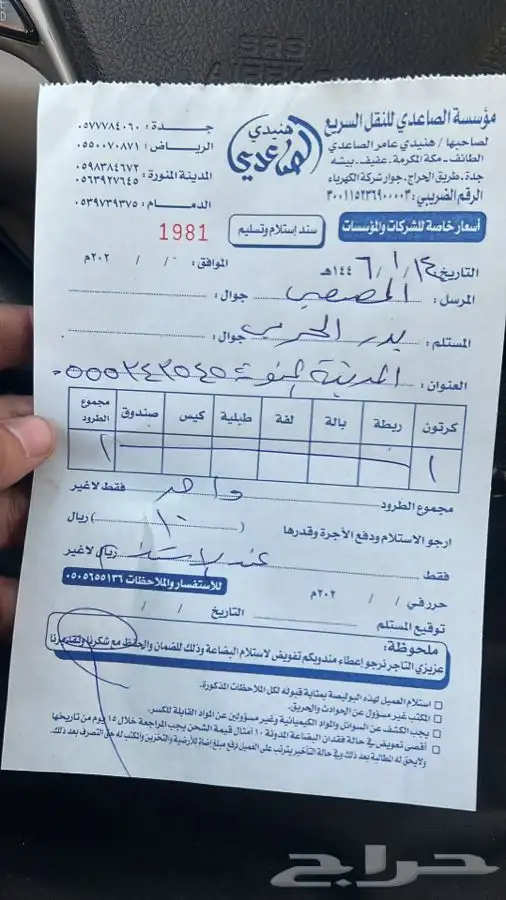 SRS
مؤسسة الصاعدي للنقل السريع
لصاحبها / هنيدي عامر الصاعدي
الطائف - مكة المكرمة - عفيف - بيشه
جدة - طريق الحراج - جوار شركة الكهرباء
الرقم الضريبي: ٣٠٠١١٥٢٣٦٩٠٠٠٠٣
هنيدي
الصاعدي
جدة: ٠٥٧٧٧٨٤٠٦٠
الرياض: ٠٥٥٠٠٧٠٨٧١
المدينة المنورة: ٠٥٩٨٣٨٤٦٧٢
٠٥٦٣٩٢٧٦٤٥
الدمام: ٠٥٣٩٧٣٩٣٧٥
أسعار خاصة للشركات والمؤسسات
سند إستلام وتسليم
1981
التاريخ ١٤ / ١ / ١٤٤٦هـ
الموافق: / / ٢٠٢م
المرسل: جوال:
المستلم: بدر الحربي جوال:
العنوان: المدينة المنورة ٠٥٥٥٣٤٣٥٤٥
كرتون ربطة بالة لفة طبلية كيس صندوق مجموع الطرود
١ ١
مجموع الطرود واحد فقط لاغير
ارجو الاستلام ودفع الأجرة وقدرها ( ١٠ ) ريال
فقط عند الاستلام ريال لاغير
حرر في / / ٢٠٢م
للاستفسار والملاحظات ٠٥٠٥٦٥٥١٣٦
توقيع المستلم التاريخ / /
ملحوظة:
عزيزي التاجر نرجو إعطاء مندوبكم تفويض لاستلام البضاعة وذلك للضمان والحفظ مع شكرنا وتقديرنا
استلام العميل لهذه البوليصة بمثابة قبوله لكل الملاحظات المذكورة.
المكتب غير مسؤول عن الحوادث والحريق.
يجب الكشف عن السوائل والمواد الكيميائية وغير مسؤولين عن المواد القابلة للكسر.
أقصى تعويض في حالة فقدان البضاعة المدونة ١٠ أمثال قيمة الشحن يجب المراجعة خلال ١٥ يوم من تاريخها
ولا يحق له المطالبة بعد ذلك وفي حالة التأخير يترتب على العميل دفع مبلغ إضافة للأرضية والتخزين والمكتب له حق التصرف بعد ذلك.
حراج